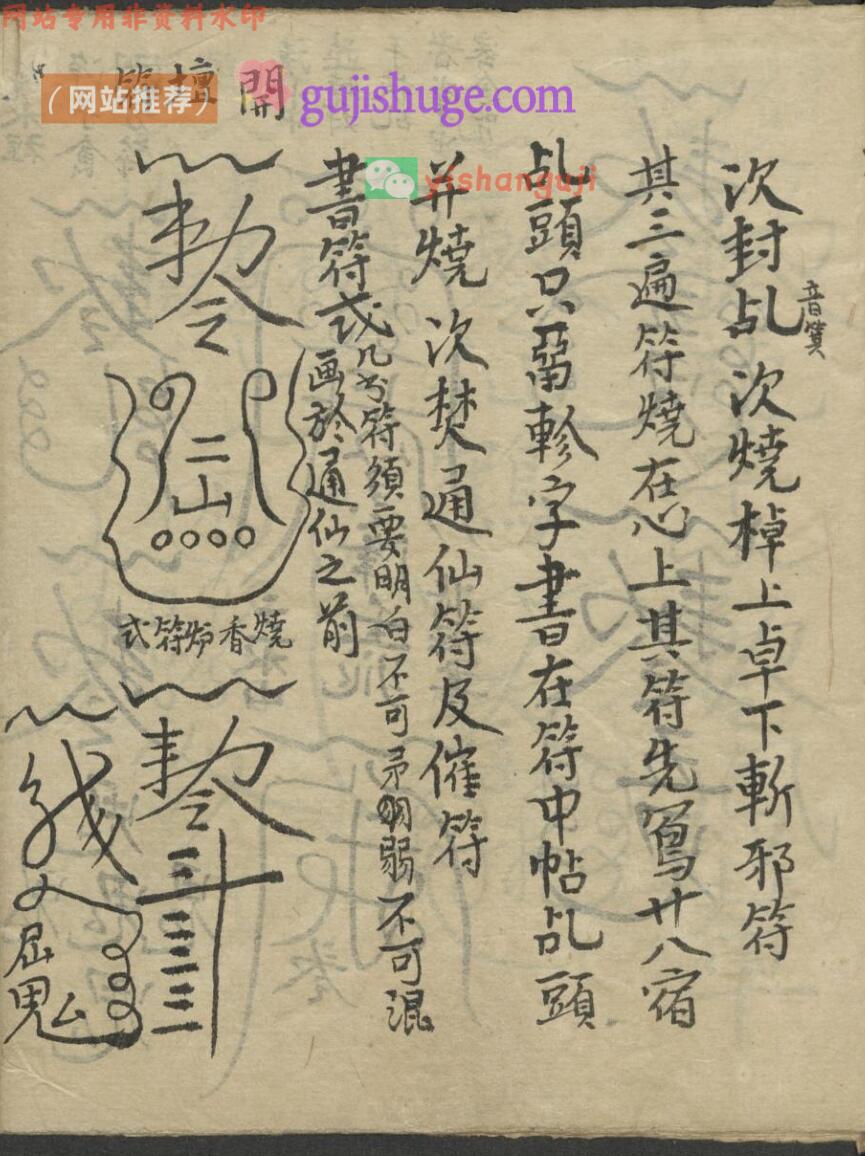 网站专用非资料水印
(网站推荐)
gujishuge.com
yishanguji
次封乩 次燒棹上卓下斬邪符
音箕
其三遍符燒在心上其符先寫廿八宿
乩頭只畱軫字書在符中帖乩頭
并燒 次焚通仙符及催符
書符式
几书符須要明白不可弱不可混
画於通仙之前
開壇符
敕令
二山
燒香炉符式
敕令
屈鬼